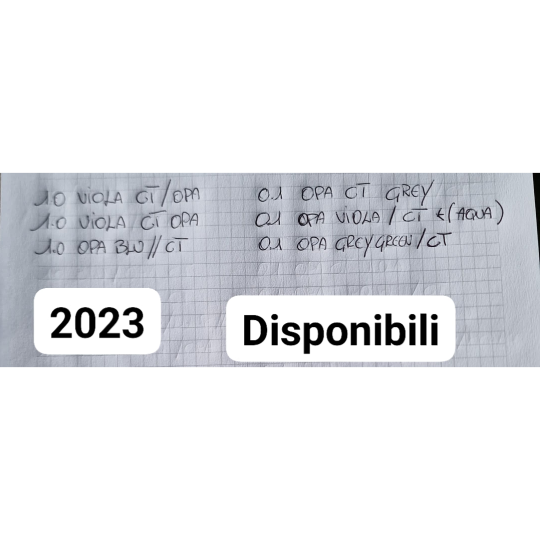 1.0 VIOLA CT/OPA
1.0 VIOLA CT OPA
1.0 OPA BLU//CT
0.1 OPA CT GREY
0.1 OPA VIOLA/CT (AQUA)
0.1 OPA GREYGREEN/CT
2023
Disponibili